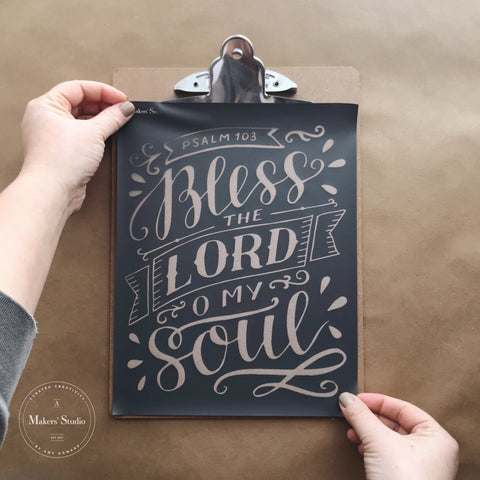 Makers' St
PSALM 103
Bless
THE
LORD
O MY
Soul
CURATED CREATIVITY
A
Makers' Studio
EST 2017
BY AMY HOWARD